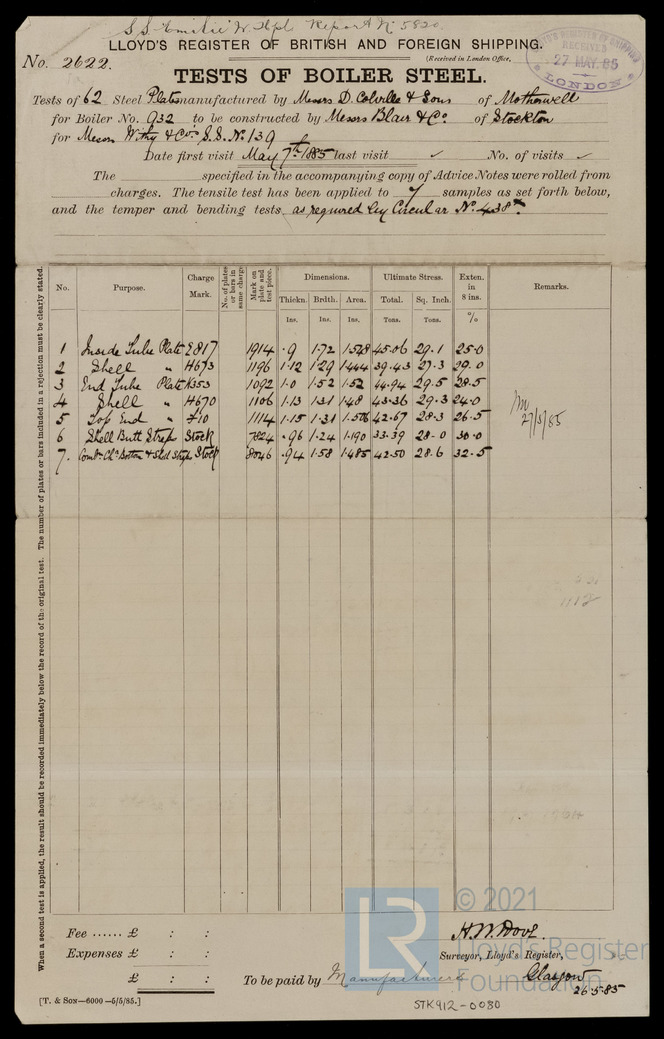 S.S. "Emilie" W. Hpl Report No 5820.
LLOYD'S REGISTER OF BRITISH AND FOREIGN SHIPPING.
No. 2622. [Received in London Office,
LLOYD'S REGISTER OF SHIPPING RECEIVED 27 MAY. 85 LONDON
TESTS OF BOILER STEEL.
Tests of 62 Steel Plates manufactured by Messrs D. Colville & Sons of Motherwell
for Boiler No. 932 to be constructed by Messrs Blair & Co. of Stockton
for Messrs Withy & Co's S.S. No 139
Date first visit May 7th 1885 last visit ✓ No. of visits ✓
The specified in the accompanying copy of Advice Notes were rolled from
charges. The tensile test has been applied to 7 samples as set forth below,
and the temper and bending tests, as required by Circular No. 438
When a second test is applied, the result should be recorded immediately below the record of the original test. The number of plates or bars included in a rejection must be clearly stated.
No. Purpose. Charge Mark. No. of plates or bars in same charge Mark on plate and test piece. Dimensions. Ultimate Stress. Exten. in 8 ins. Remarks.
Thickn. Brdth. Area. Total. Sq. Inch.
Ins. Ins. Ins. Tons. Tons. %
1 Inside Tube Plate E817 1914 .9 1.72 1.548 45.06 29.1 25.0
2 Shell " H673 1196 1.12 1.29 1.444 39.43 27.3 29.0
3 End Tube Plate K353 1092 1.0 1.52 1.52 44.94 29.5 28.5
4 Shell " H670 1106 1.13 1.31 1.48 43.36 29.3 24.0
5 Top End " 1114 1.15 1.31 1.506 42.67 28.3 26.5
6 Shell Butt Straps Stock 7824 .96 1.24 1.190 33.39 28.0 30.0
7. Comb. Ch. Bottom & Shell Straps Stock 8046 .94 1.58 1.485 42.50 28.6 32.5
27/5/85
Fee ...... £ : :
Expenses £ : :
£ : :
To be paid by Manufacturers
Surveyor, Lloyd's Register,
Glasgow
26.5.85
[T. & Son—6000—5/5/85.]
STK912-0080
LR © 2021
Lloyd's Register
Foundation